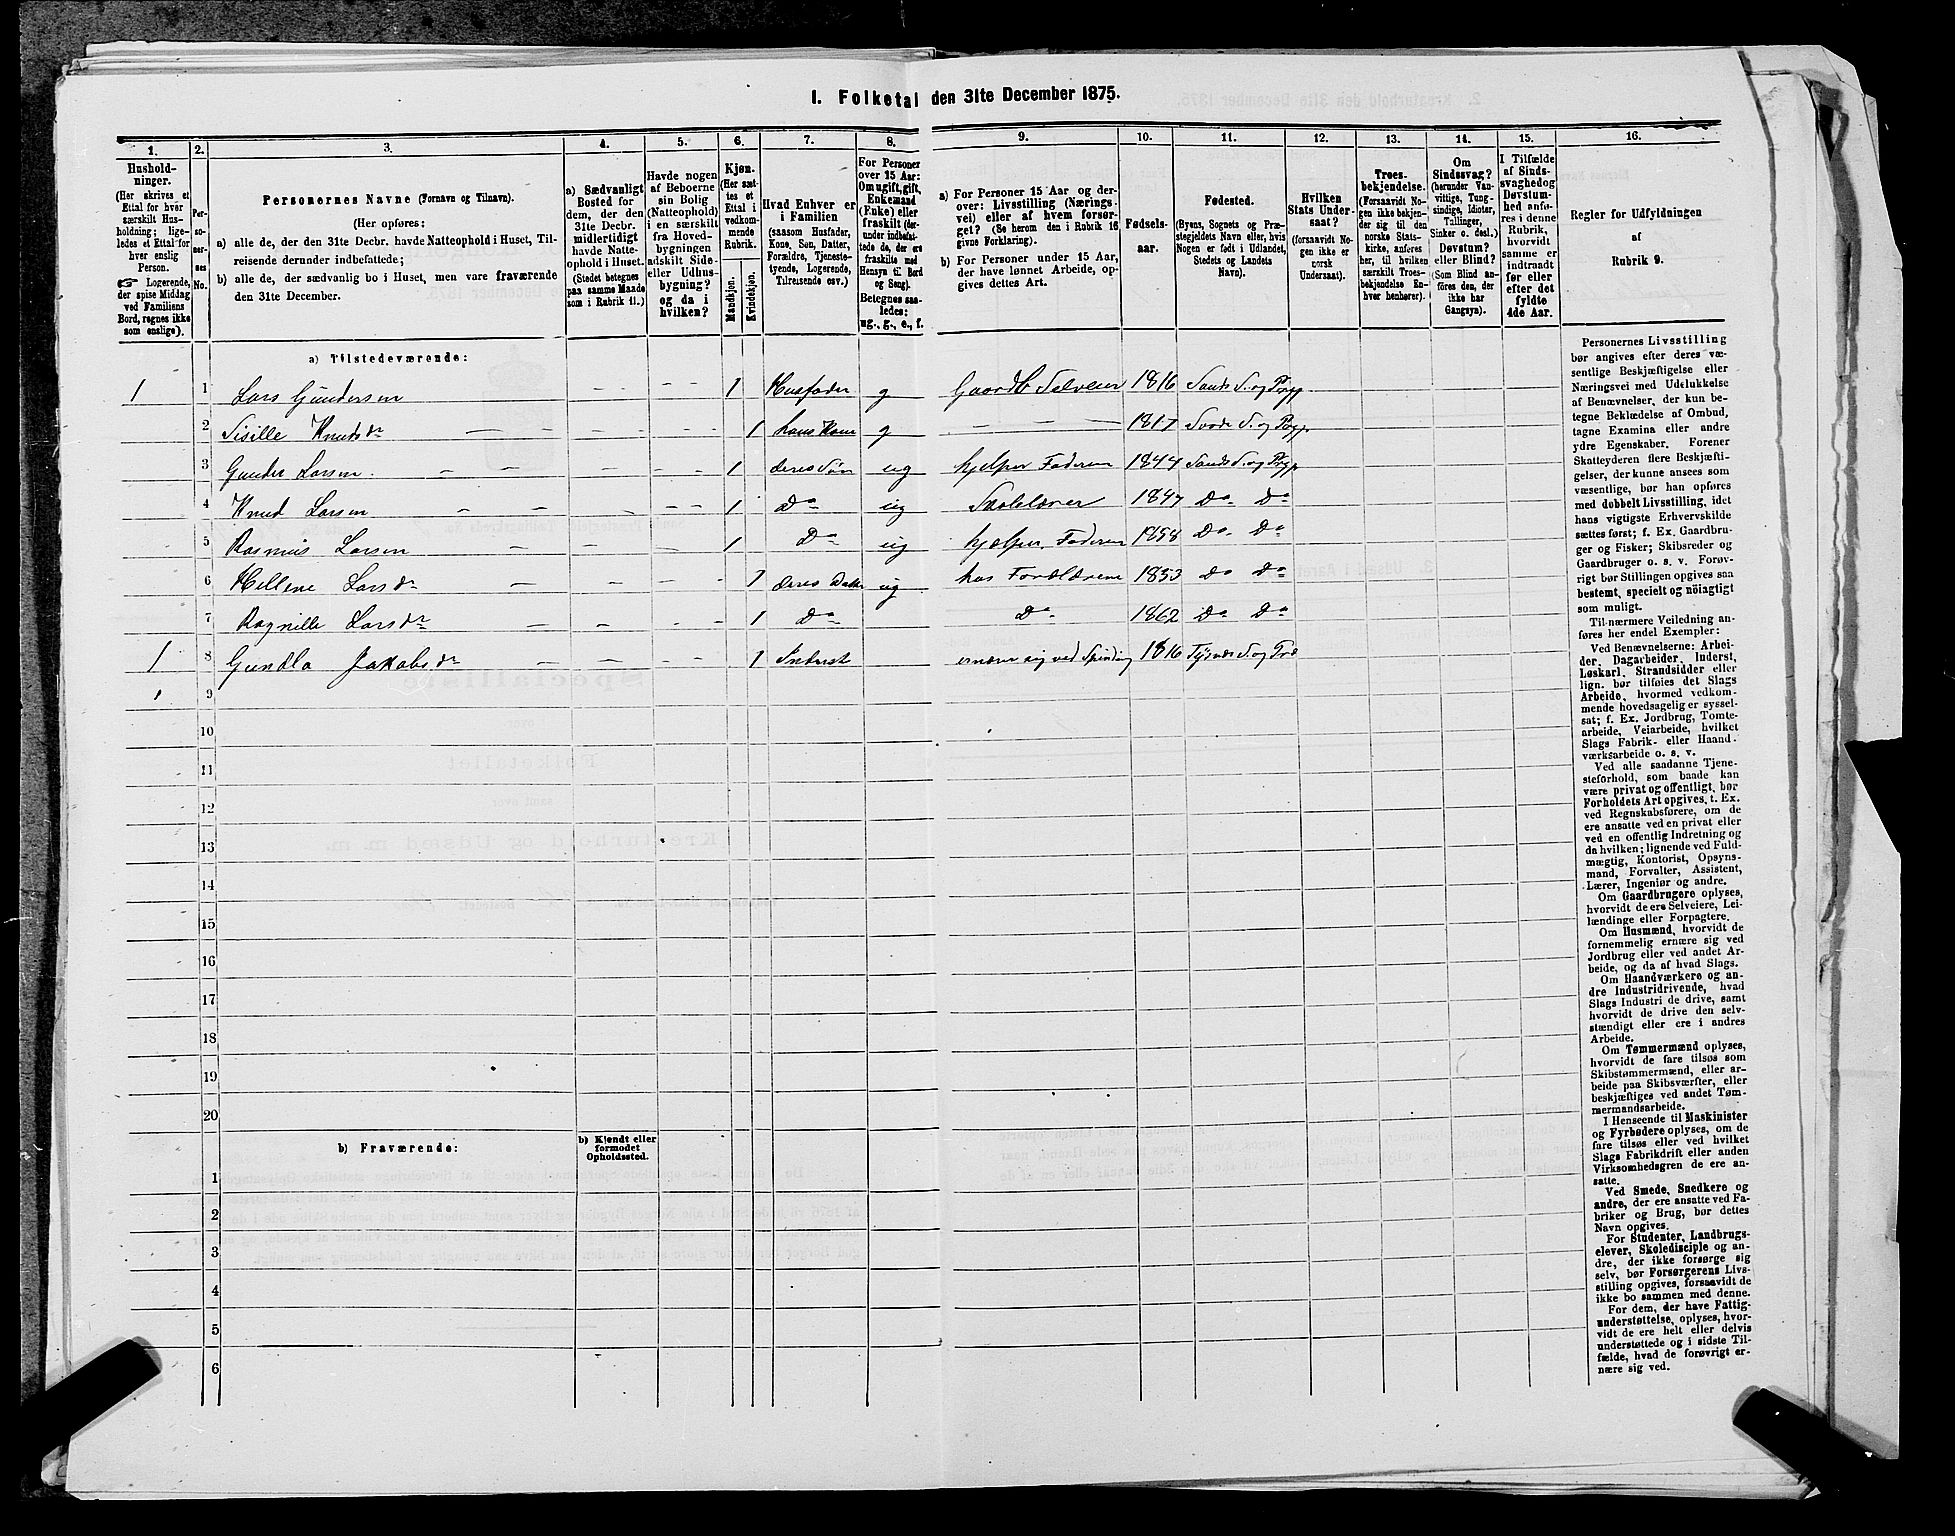 1. Folketal den 31te December 1875.
1. 2. 3. 4. 5. 6. 7. 8. 9. 10. 11. 12. 13. 14. 15. 16.
Hushold-
ninger.
(Her skrives et
Ettal for hver
særskilt Hus-
holdning; lige-
ledes et Ettal for
hver enslig
Person.
☞ Logerende,
der spise Middag
ved Familiens
Bord, regnes ikke
som enslige).
Per-
so-
ner-
nes
No.
Personernes Navne (Fornavn og Tilnavn).
(Her opføres:
a) alle de, der den 31te Decbr. havde Natteophold i Huset, Til-
reisende derunder indbefattede;
b) alle de, der sædvanlig bo i Huset, men vare fraværende
den 31te December.
a) Sædvanligt
Bosted for
dem, der den
31te Decbr.
midlertidigt
havde Natte-
ophold i Huset.
(Stedet betegnes
paa samme Maade
som i Rubrik 11.)
Havde nogen
af Beboerne
sin Bolig
(Natteophold)
i en særskilt
fra Hoved-
bygningen
adskilt Side-
eller Udhus-
bygning?
og da i
hvilken?
Kjøn.
(Her sæt-
tes et
Ettal i
vedkom-
mende
Rubrik.
Mandkjøn.
Kvindekjøn.
Hvad Enhver er
i Familien
(saasom Husfader,
Kone, Søn, Datter,
Forældre, Tjeneste-
tyende, Logerende,
Tilreisende osv.)
For Personer
over 15 Aar:
Om ugift, gift,
Enkemand
(Enke) eller
fraskilt (der-
under indbefat-
tede de, der ere
fraskilte med
Hensyn til Bord
og Seng).
Betegnes saa-
ledes:
ug., g., e., f.
a) For Personer 15 Aar og der-
over: Livsstilling (Nærings-
vei) eller af hvem forsør-
get? (Se herom den i Rubrik 16
givne Forklaring).
b) For Personer under 15 Aar,
der have lønnet Arbeide, op-
gives dettes Art.
Fødsels-
aar.
Fødested.
(Byens, Sognets og Præ-
stegjeldets Navn eller, hvis
Nogen er født i Udlandet,
Stedets og Landets
Navn).
Hvilken
Stats Under-
saat?
(forsaavidt No-
gen ikke er
norsk
Undersaat).
Troes-
bekjendelse.
(Forsaavidt No-
gen ikke bekjen-
der sig til den
norske Stats-
kirke, anføres
her, til hvilken
særskilt Troes-
bekjendelse En-
hver henhører).
Om
Sindssvag?
(herunder Van-
vittige, Tung-
sindige, Idioter,
Tullinger,
Sinker o. desl.)
Døvstum?
eller Blind?
(Som Blind an-
føres den, der
ikke har
Gangsyn).
I Tilfælde
af Sinds-
svaghed og
Døvstum-
hed anfø-
res i denne
Rubrik,
hvorvidt
samme er
indtraadt
før eller
efter det
fyldte
4de Aar.
Regler for Udfyldningen
af
Rubrik 9.
a) Tilstedeværende:
1 1 Lars Gundersen — — — — 1 Husfader g Gaardb Selveier 1816 Sands S. og Prgp
2 Sisille Knudsdr — — — — — 1 hans Kone g — — 1817 S. og Prgp.
3 Gunder Larsen. — — — — — 1 deres Søn ug hjelper Faderen 1844 Sands S. og Prgp
4 Knud Larsen — — — — — 1 Do ug Skolelærer 1847 Do. Do
5 Rasmus Larsen — — — — 1 Do ug hjælper Faderen 1858 Do. Do
6 Hellene Larsdr — — — — 1 deres Datter ug hos Forældrene 1853 Do Do
7 Ragnille Larsdr — — — — 1 Do Do. 1862 Do Do
1 8 Gundla Jakobsdr — — — — 1 Inderst ernærer sig ved Spinding 1816 Tysnes S. og Præ
1 9
10
11
12
13
14
15
16
17
18
19
20
b) Fraværende:
b) Kjendt eller
formodet
Opholdssted.
1
2
3
4
5
6
Personernes Livsstilling
bør angives efter deres væ-
sentlige Beskjæftigelse eller
Næringsvei med Udelukkelse
af Benævnelser, der kun be-
tegne Beklædelse af Ombud,
tagne Examina eller andre
ydre Egenskaber. Forener
Skatteyderen flere Beskjæfti-
gelser, der kunne ansees som
væsentlige, bør han opføres
med dobbelt Livsstilling, idet
hans vigtigste Erhvervskilde
sættes først; f. Ex. Gaardbru-
ger og Fisker; Skibsreder og
Gaardbruger o. s. v. Forøv-
rigt bør Stillingen opgives saa
bestemt, specielt og nöiagtigt
som muligt.
Til nærmere Veiledning an-
føres her endel Exempler:
Ved Benævnelserne: Arbei-
der, Dagarbeider, Inderst,
Løskarl, Strandsidder eller
lign. bør tilføies det Slags
Arbeide, hvormed vedkom-
mende hovedsagelig er syssel-
sat; f. Ex. Jordbrug, Tomte-
arbeide, Veiarbeide, hvilket
Slags Fabrik- eller Haand-
værksarbeide o. s. v.
Ved alle saadanne Tjene-
steforhold, som baade kan
være privat og offentligt, bør
Forholdets Art opgives, t. Ex.
ved Regnskabsførere, om de
ere ansatte ved en privat eller
ved en offentlig Indretning og
da hvilken; lignende ved Fuld-
mægtig, Kontorist, Opsyns-
mand, Forvalter, Assistent,
Lærer, Ingeniør og andre.
Om Gaardbrugere oplyses,
hvorvidt de ere Selveiere, Lei-
lændinge eller Forpagtere.
Om Husmænd, hvorvidt de
fornemmelig ernære sig ved
Jordbrug eller ved andet Ar-
beide, og da af hvad Slags.
Om Haandværkere og an-
dre Industridrivende, hvad
Slags Industri de drive, samt
hvorvidt de drive den selv-
stændigt eller ere i andres
Arbeide.
Om Tømmermænd oplyses,
hvorvidt de fare tilsøs som
Skibstømmermænd, eller ar-
beide paa Skibsværfter, eller
beskjæftiges ved andet Tøm-
mermandsarbeide.
I Henseende til Maskinister
og Fyrbødere oplyses, om de
fare tilsøs eller ved hvilket
Slags Fabrikdrift eller anden
Virksomhedsgren de ere an-
satte.
Ved Smede, Snedkere og
andre, der ere ansatte ved Fa-
briker og Brug, bør dettes
Navn opgives.
For Studenter, Landbrugs-
elever, Skoledisciple og an-
dre, der ikke forsørge sig
selv, bør Forsørgerens Livs-
stilling opgives, forsaavidt de
ikke bo sammen med denne.
For dem, der have Fattig-
understøttelse, oplyses, hvor-
vidt de ere helt eller delvis
understøttede og i sidste Til-
fælde, hvad de forøvrigt er-
nære sig ved.